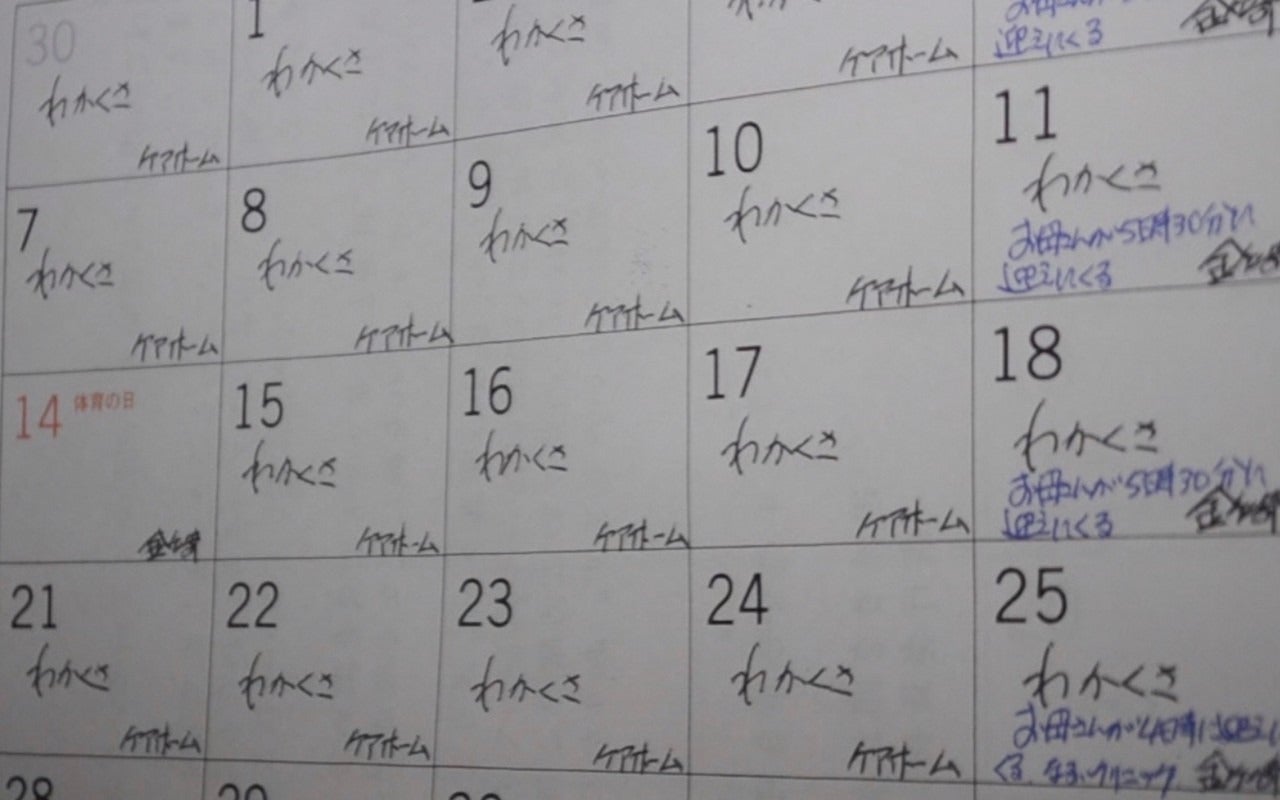 30
わかくさ
ケアホーム
1
わかくさ
ケアホーム
わかくさ
ケアホーム
ケアホーム
迎えにくる
7
わかくさ
ケアホーム
8
わかくさ
ケアホーム
9
わかくさ
ケアホーム
10
わかくさ
ケアホーム
11
わかくさ
お母さんが5時30分に
迎えにくる
14 体育の日
15
わかくさ
ケアホーム
16
わかくさ
ケアホーム
17
わかくさ
ケアホーム
18
わかくさ
お母さんが5時30分に
迎えにくる
21
わかくさ
ケアホーム
22
わかくさ
ケアホーム
23
わかくさ
ケアホーム
24
わかくさ
ケアホーム
25
わかくさ
お母さんが4時に迎えに
くる クリニック
28